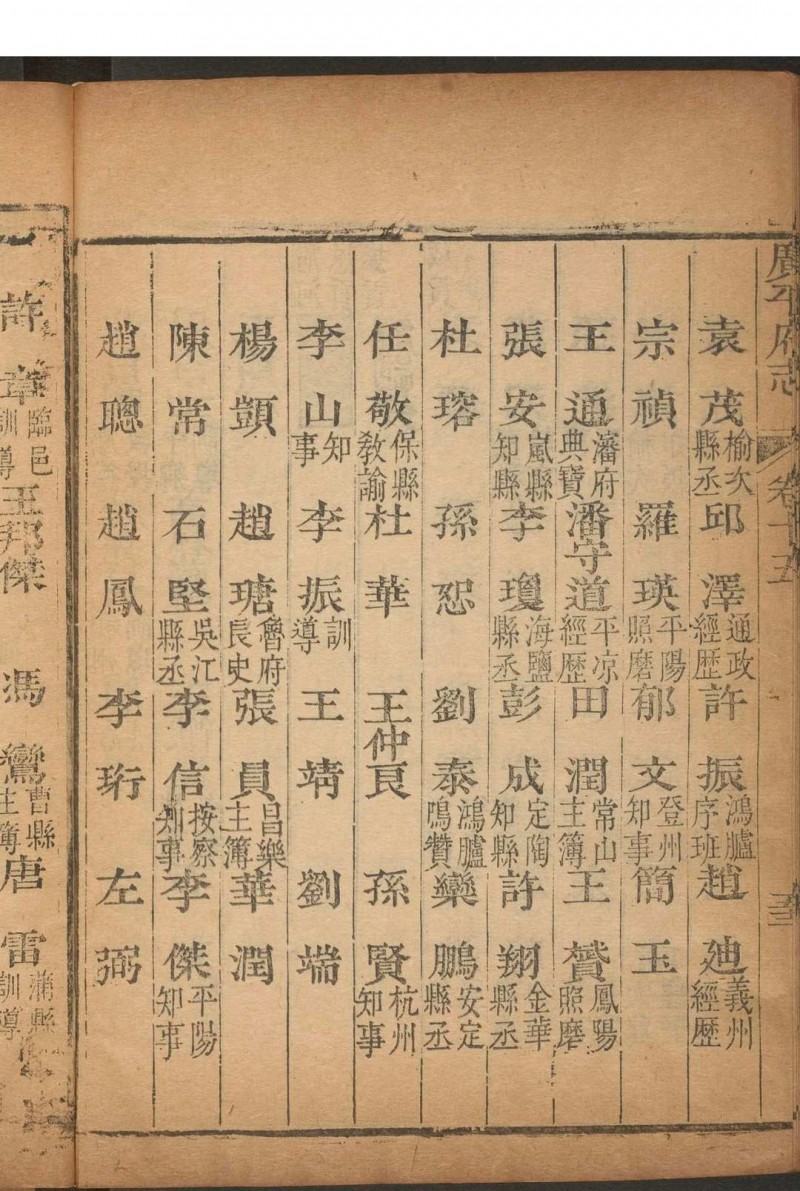 廣平府志 卷十五 三三
袁茂榆次縣丞 邱澤通政經歷 許振鴻臚序班 趙廸義州經歷
宗禎 羅瑛平陽照磨 郁文登州知事 簡玉
王通瀋府典寶 潘守道平凉經歷 田潤常山主簿 王贇鳳陽照磨
張安嵐縣知縣 李瓊海鹽縣丞 彭成定陶知縣 許翔金華縣丞
杜瑢 孫恕 劉泰鴻臚鳴贊 欒鵬安定縣丞
任敬保縣敎諭 杜華 王仲良 孫賢杭州知事
李山知事 李振訓導 王靖 劉端
楊顗 趙瑭魯府長史 張員昌樂主簿 華潤
陳常 石堅吳江縣丞 李信按察知事 李傑平陽知事
趙聰 趙鳳 李珩 左弼
許章臨邑訓導 王邦傑 馮鸞曹縣主簿 唐雷蒲縣訓導